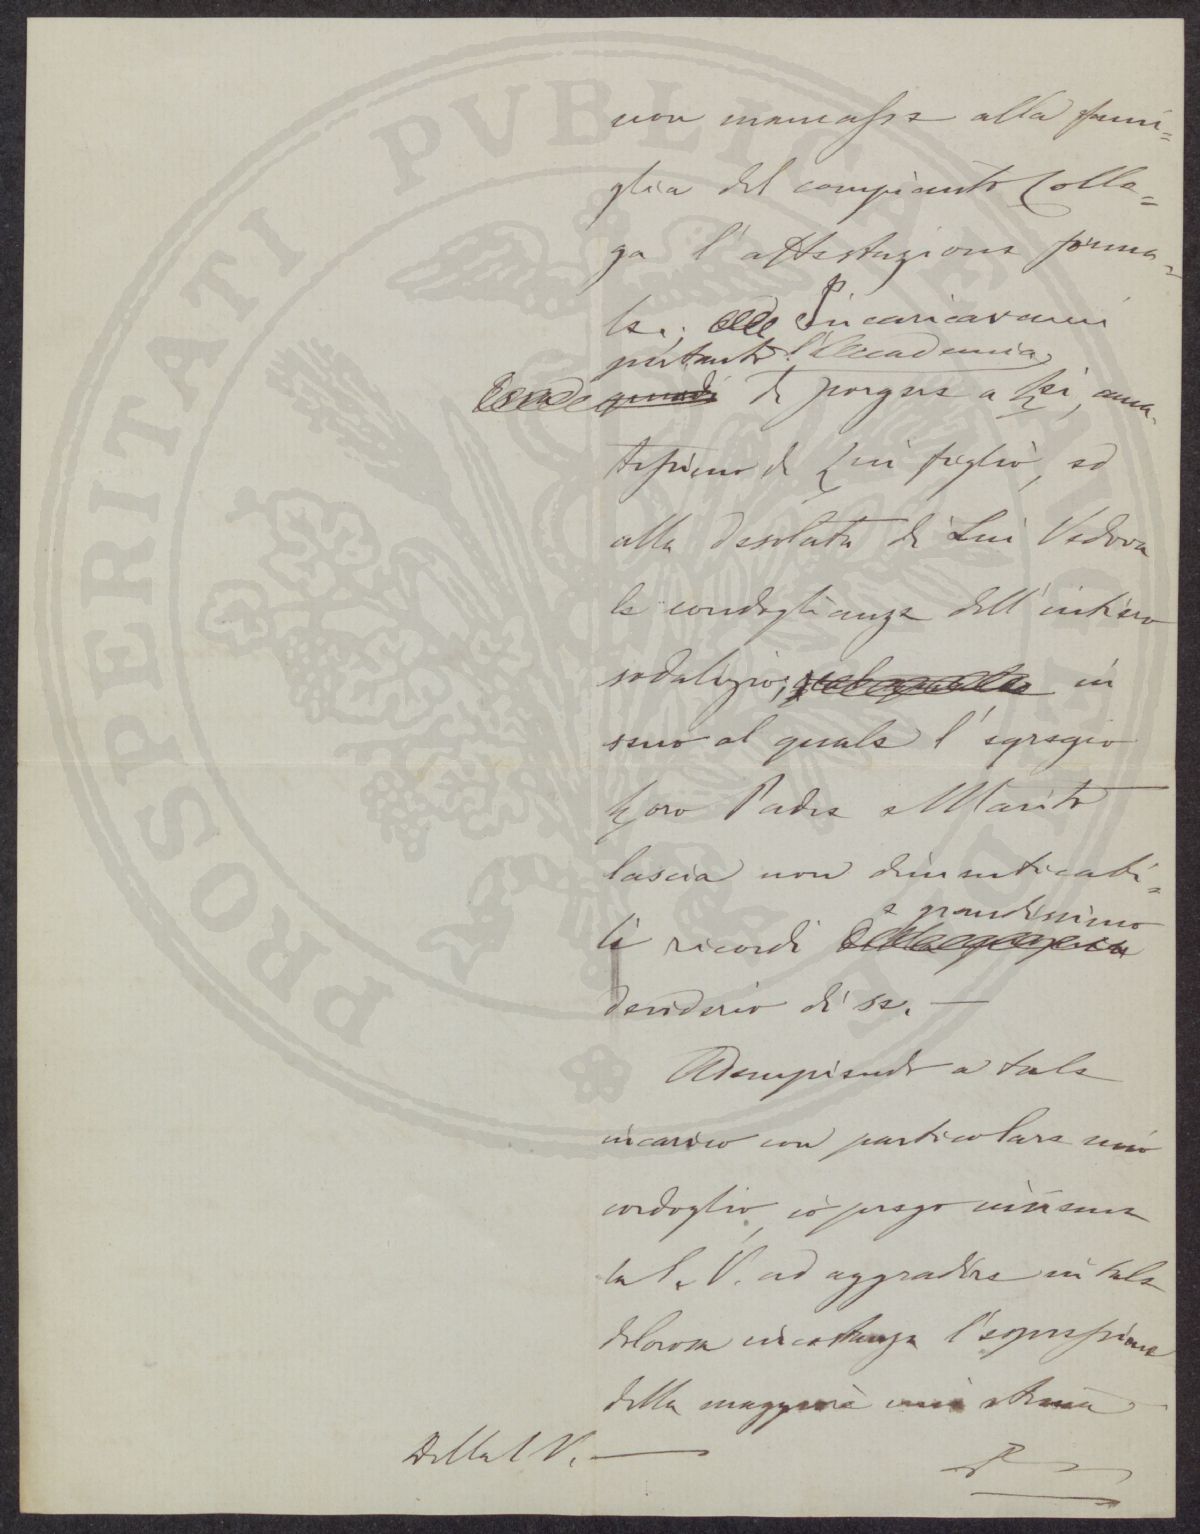 PROSPERITATI PVBLICAE AVGENDAE
non mancasse alla fami=
glia del compianto Colle=
ga l'attestazione forma=
le. Incaricavami
pertanto l'Accademia
quindi di porgere a Lei, ama=
tissimo di Lui figlio, ed
alla desolata di Lui Vedova
le condoglianze dell'intiero
sodalizio, in
seno al quale l'egregio
Loro Padre e Marito
lascia non dimenticabi=
li ricordi e grandissimo
desiderio di se. —
Adempiendo a tale
incarico con particolare mio
cordoglio, io prego insieme
la S. V. ad aggradire in tale
dolorosa circostanza l'espressione
della maggiore mia stima
Della S V. —